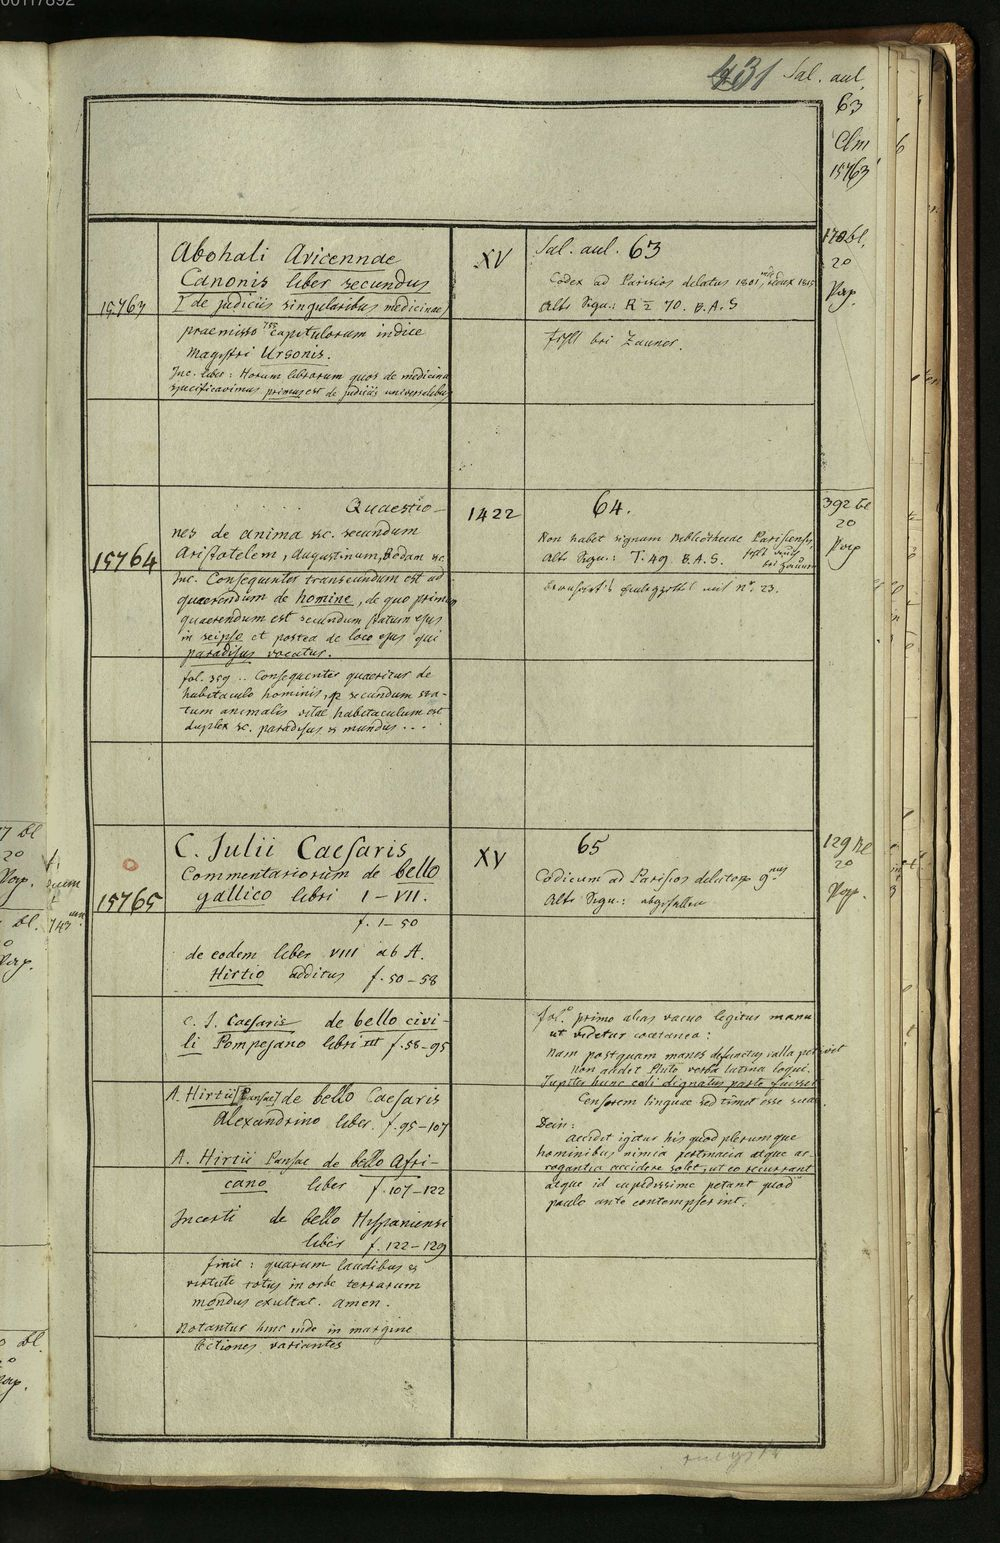 00117892
431 Sal. aul.
63
Clm
15763
15763
Abohali Avicennae
Canonis liber secundus
I de judiciis singularibus medicinae,
praemisso capitulorum indice
Magistri Ursonis.
Inc. liber: Horum librorum quos de medicina
specificavimus primus est de judiciis universalibus
XV
Sal. aul. 63
Codex ad Parisios delatus 1801, redux 1815
Alte Sign.: R I 70. B.A.S
fehlt bei Zauner.
170 bl.
20
Pap.
15764
Quaestio-
nes de anima sc. secundum
Aristotelem, Augustinum, Bedam etc.
Inc. Consequenter transeundum est ad
quaerendum de homine, de quo primum
quaerendum est secundum statum ejus
in seipso et postea de loco ejus qui
paradisus vocatur.
fol. 359 .. Consequenter quaeritur de
habitaculo hominis, secundum sta-
tum animalis vitae habitaculum est
duplex sc. paradisus et mundus ...
1422
64.
Non habet signum Bibliothecae Parisiensis,
Alte Sign.: T. 49 B.A.S. fehlt auch
bei Zauner
mit nr. 23.
392 bl
20
Pap
15765
C. Julii Caesaris
Commentariorum de bello
gallico libri I–VII.
f. 1–50
de eodem liber VIII ab A.
Hirtio additus f. 50–58
C. J. Caesaris de bello civi-
li Pompejano libri III f. 58–95
A. Hirtii [Pansae] de bello Caesaris
Alexandrino liber. f. 95–107
A. Hirtii Pansae de bello Afri-
cano liber f. 107–122
Incerti de bello Hispaniensi
liber f. 122–129
finit: quarum laudibus et
virtute totus in orbe terrarum
mondus exultat. Amen.
Notantur hinc inde in margine
lectiones variantes
XV
65
Codicum ad Parisios delator. 9nus
Alte Sign.: abgefallen
fol.o primo alias vacuo legitur manu
ut videtur coaetanea:
Nam postquam manes defunctus valla petivit
Non audet Pluto verba latina loqui.
Jupiter hunc coeli dignatus parte fuisset
Censorem linguae sed timet esse suae.
Dein:
Accidit igitur his quod plerumque
hominibus nimia pertinacia atque ar-
rogantia accidere solet, ut eo recurrant
atque id cupidissime petant quod
paulo ante contempserint.
129 bl
20
Pap.